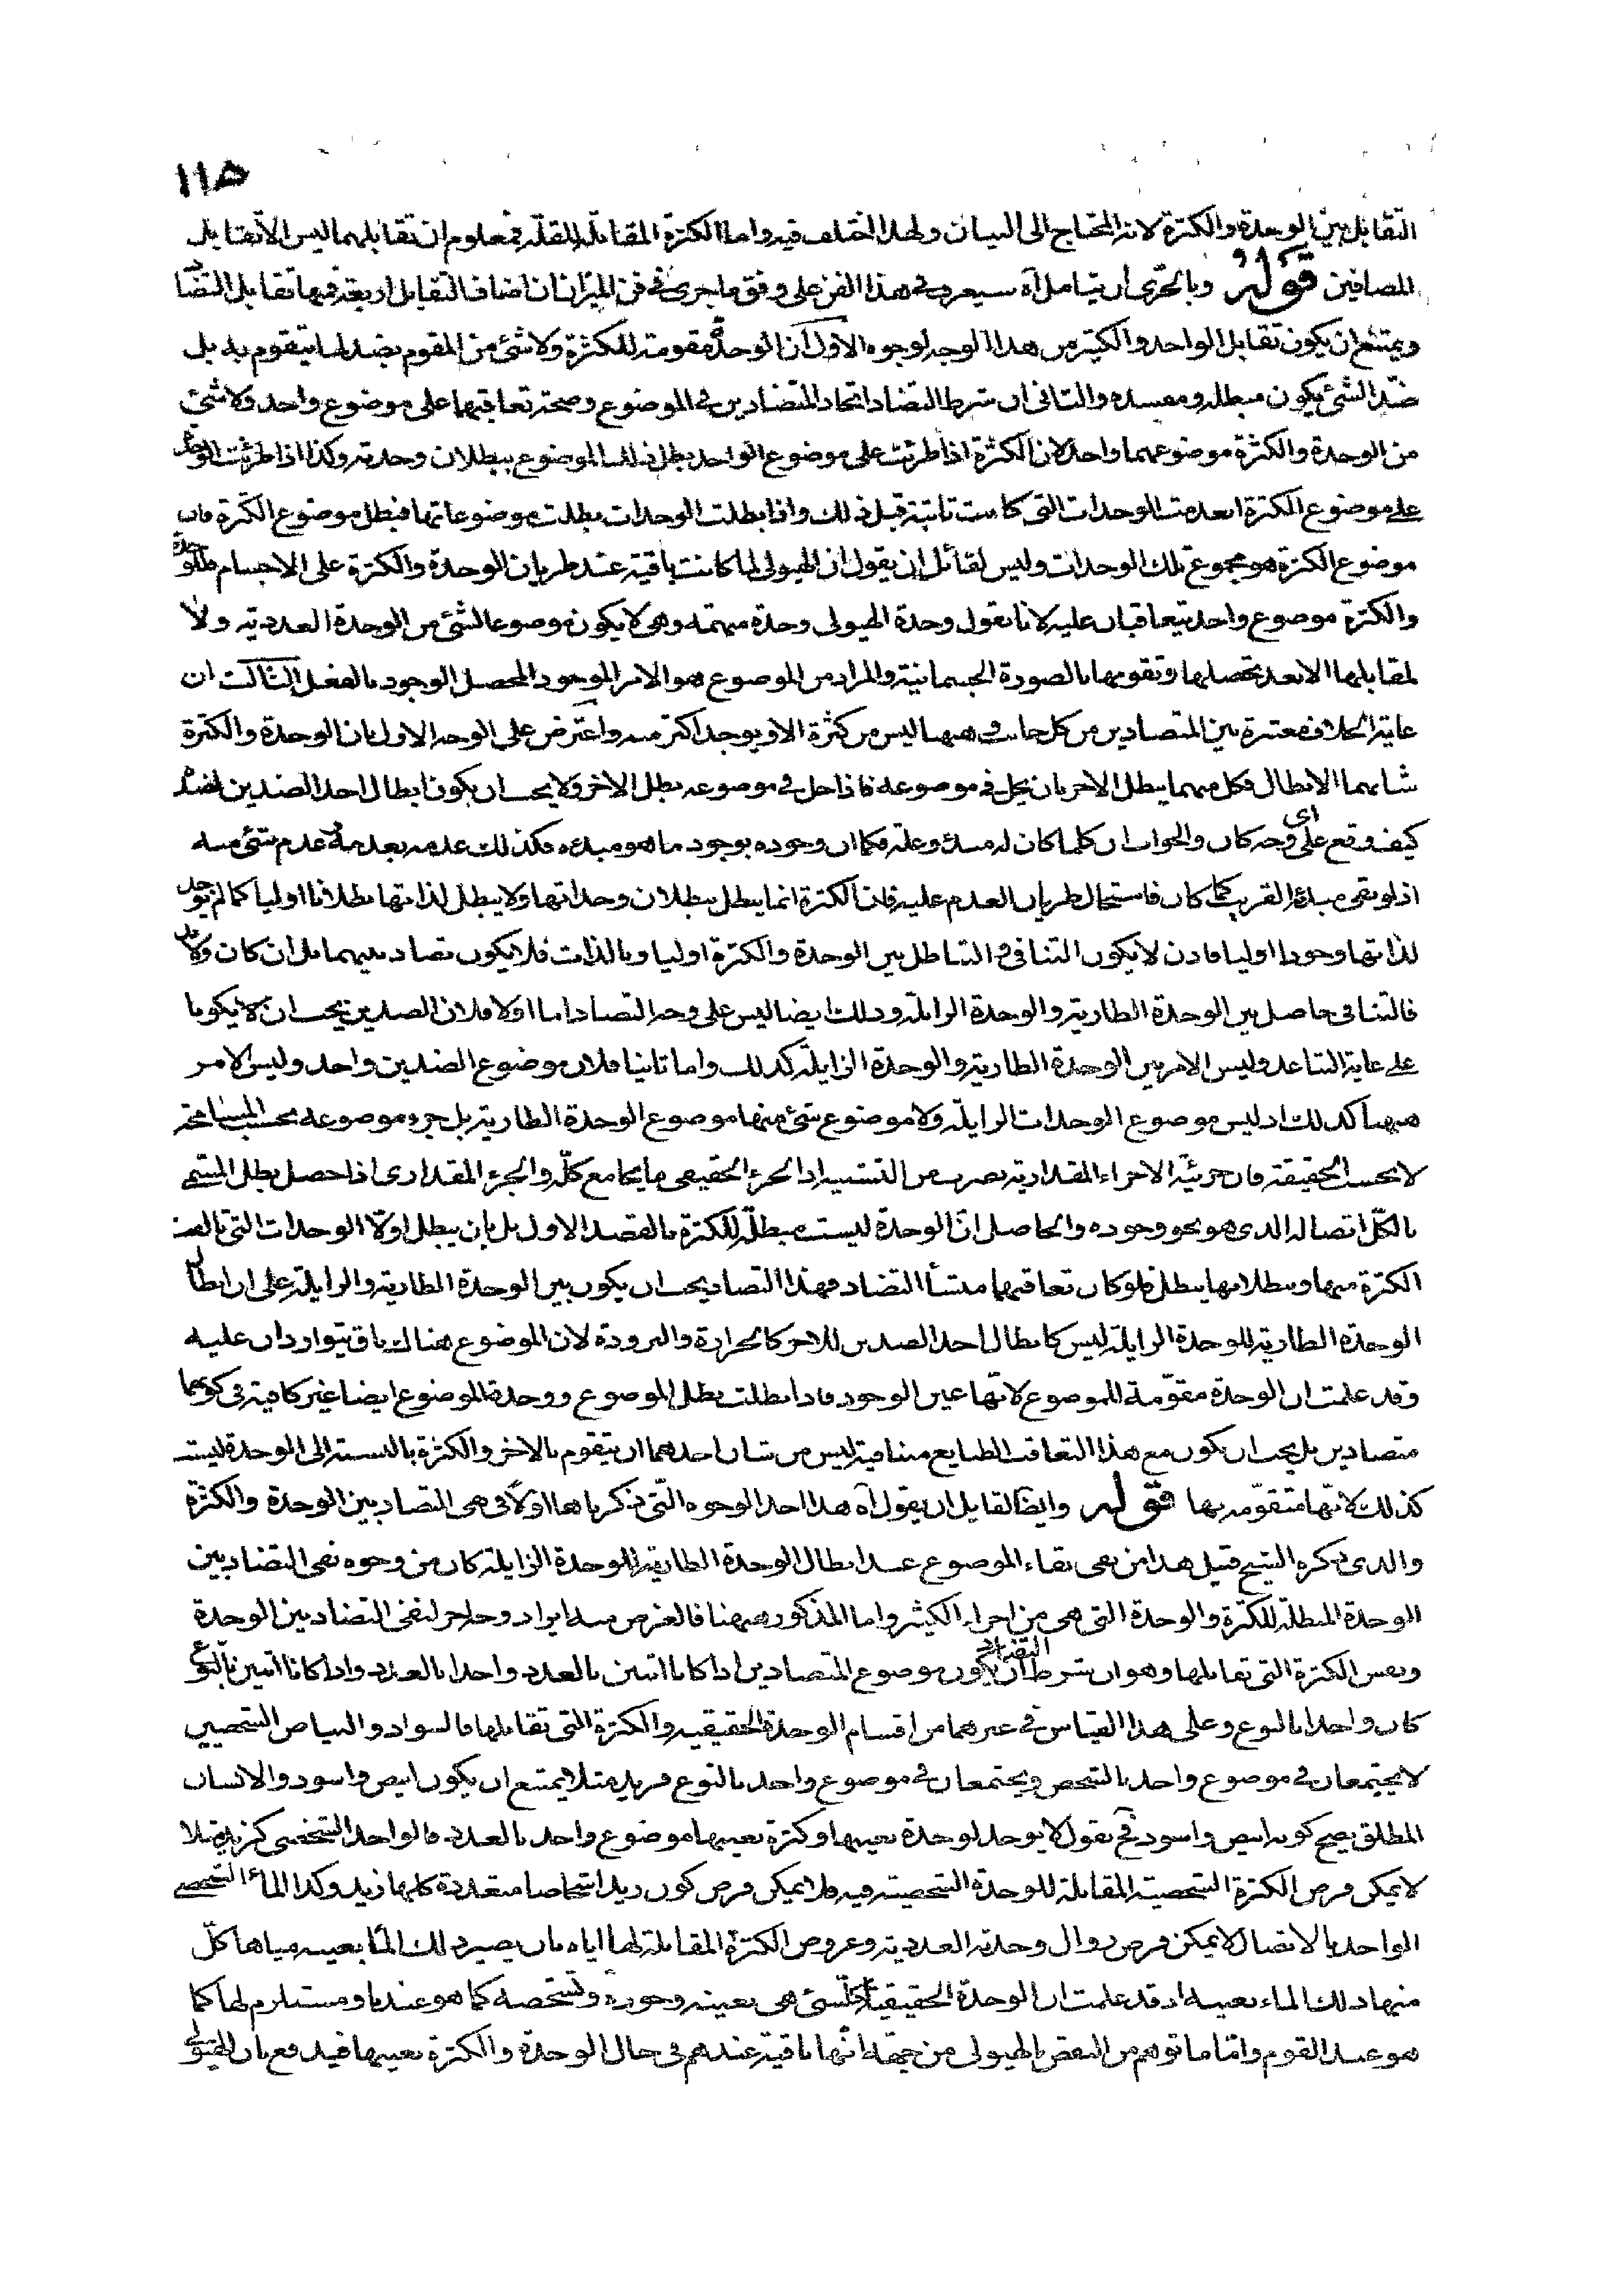 ١١٥
التقابل بين الوحدة والكثرة لانه المحتاج الى البيان ولهذا اختلف فيه واما الكثرة المقابلة للقلة فمعلوم ان تقابلهما ليس الا تقابل
المضافين قوله وبالحرى ان يتامل آه سيعرف في هذا الفن على وفق ما جرى في فن الميزان ان اصناف التقابل اربعة فمنها تقابل التضاد
ويمتنع ان يكون تقابل الواحد والكثير من هذا الوجه لوجوه الاول ان الوحدة مقومة للكثرة ولا شئ من المقوم بضد لما يتقوم به بل
ضد الشئ يكون مبطله ومفسده والثانى ان شرط التضاد اتحاد المتضادين في الموضوع وصحة تعاقبهما على موضوع واحد ولا شئ
من الوحدة والكثرة موضوعهما واحد لان الكثرة اذا طرئت على موضوع الواحد بطل ذلك الموضوع ببطلان وحدته وكذا اذا طرئت الوحدة
على موضوع الكثرة انعدمت الوحدات التى كانت ثابتة قبل ذلك واذا بطلت الوحدات بطلت موضوعاتها فبطل موضوع الكثرة فان
موضوع الكثرة هو مجموع تلك الوحدات وليس لقائل ان يقول ان الهيولى لما كانت باقية عند طريان الوحدة والكثرة على الاجسام فللوحدة
والكثرة موضوع واحد يتعاقبان عليه لانا نقول وحدة الهيولى وحدة مبهمة وهى لا يكون موضوعا لشئ من الوحدة العددية ولا
لمقابلها الا بعد تحصلها وتقومها بالصورة الجسمانية والمراد من الموضوع هو الامر الموجود المحصل الوجود بالفعل الثالث ان
غاية الخلاف معتبرة بين المتضادين من كل جانب وههنا ليس من كثرة الا ويوجد اكثر منه واعترض على الوجه الاول بان الوحدة والكثرة
شانهما الابطال فكل منهما يبطل الاخر بان يحل في موضوعه فاذا حل في موضوعه بطل الاخر ولا يجب ان يكون ابطال احد الضدين لضده
كيف وقع على اى وجه كان والجواب ان كلما كان له مبدء وعلة فكما ان وجوده بوجود ما هو مبدءه فكذلك عدمه بعدمه عدم شئ منه
اذ لو بقى مبدؤه القريب كما كان فاستحال طريان العدم عليه فان الكثرة انما يبطل ببطلان وحداتها ولا يبطل لذاتها بطلانا اوليا كما لم توجد
لذاتها وجودا اوليا فاذن لا يكون التنافى والتباطل بين الوحدة والكثرة اوليا وبالذات فلا يكون تضاد بينهما بل ان كان ولا بد
فالتنافى حاصل بين الوحدة الطارية والوحدة الزايلة وذلك ايضا ليس على وجه التضاد اما اولا فلان الضدين يجب ان لا يكونا
على غاية التباعد وليس الامر بين الوحدة الطارية والوحدة الزايلة كذلك واما ثانيا فلان موضوع الضدين واحد وليس الامر
ههنا كذلك اذ ليس موضوع الوحدات الزايلة ولا موضوع شئ منها موضوع الوحدة الطارية بل جزء موضوعه بحسب المسامحة
لا بحسب الحقيقة فان جزئية الاجزاء المقدارية بضرب من التشبيه اذ الجزء الحقيقى ما يجامع كله والجزء المقدارى اذا حصل بطل المسمى
بالكل اتصاله الذى هو نحو وجوده والحاصل ان الوحدة ليست مبطلة للكثرة بالقصد الاول بل بان يبطل اولا الوحدات التى تالفت
الكثرة منها وببطلانها يبطل فلو كان تعاقبهما منشأ التضاد فهذا التضاد يجب ان يكون بين الوحدة الطارية والزايلة على ان ابطال
الوحدة الطارية للوحدة الزايلة ليس كابطال احد الضدين للاخر كالحرارة والبرودة لان الموضوع هناك باق يتواردان عليه
وقد علمت ان الوحدة مقومة للموضوع لانها عين الوجود فاذا بطلت بطل الموضوع ووحدة الموضوع ايضا غير كافية في كونهما
متضادين بل يجب ان يكون مع هذا التعاقب الطبايع متنافية ليس من شان احدهما ان يتقوم بالاخر والكثرة بالنسبة الى الوحدة ليست
كذلك لانها متقومة بها قوله وايضا لقايل ان يقول آه هذا احد الوجوه التى ذكرناها اولا في نفى التضاد بين الوحدة والكثرة
والذى ذكره الشيخ قبيل هذا من نفى بقاء الموضوع عند ابطال الوحدة الطارية للوحدة الزايلة كان من وجوه نفى التضاد بين
الوحدة المبطلة للكثرة والوحدة التى هى من اجزاء الكثير واما المذكور ههنا فالغرض منه ايراد وجه اخر لنفى التضاد بين الوحدة
ونفس الكثرة التى تقابلها وهو ان شرط التضاد ان يكون موضوع المتضادين اذا كانا اثنين بالعدد واحدا بالعدد واذا كانا اثنين بالنوع
كان واحدا بالنوع وعلى هذا القياس في غيرهما من اقسام الوحدة الحقيقية والكثرة التى تقابلها فالسواد والبياض الشخصيين
لا يجتمعان في موضوع واحد بالشخص ويجتمعان في موضوع واحد بالنوع فزيد مثلا يمتنع ان يكون ابيض واسود والانسان
المطلق يصح كونه ابيض واسود فح نقول لا يوجد لوحدة بعينها وكثرة بعينها موضوع واحد بالعدد فالواحد الشخصى كزيد مثلا
لا يمكن فرض الكثرة الشخصية المقابلة للوحدة الشخصية فيه فلا يمكن فرض كون زيد اشخاصا متعددة كلها زيد وكذا الماء الشخصى
الواحد بالاتصال لا يمكن فرض زوال وحدته العددية وعروض الكثرة المقابلة لها اياه بان يصير ذلك الماء بعينه مياها كل
منها ذلك الماء بعينه اذ قد علمت ان الوحدة الحقيقية لكل شئ هى بعينه وجوده وتشخصه كما هو عندنا ومستلزم لها كما
هو عند القوم واما ما توهم من النقض بالهيولى من جهة انها باقية عندهم في حال الوحدة والكثرة بعينها فيدفع بان الهيولى